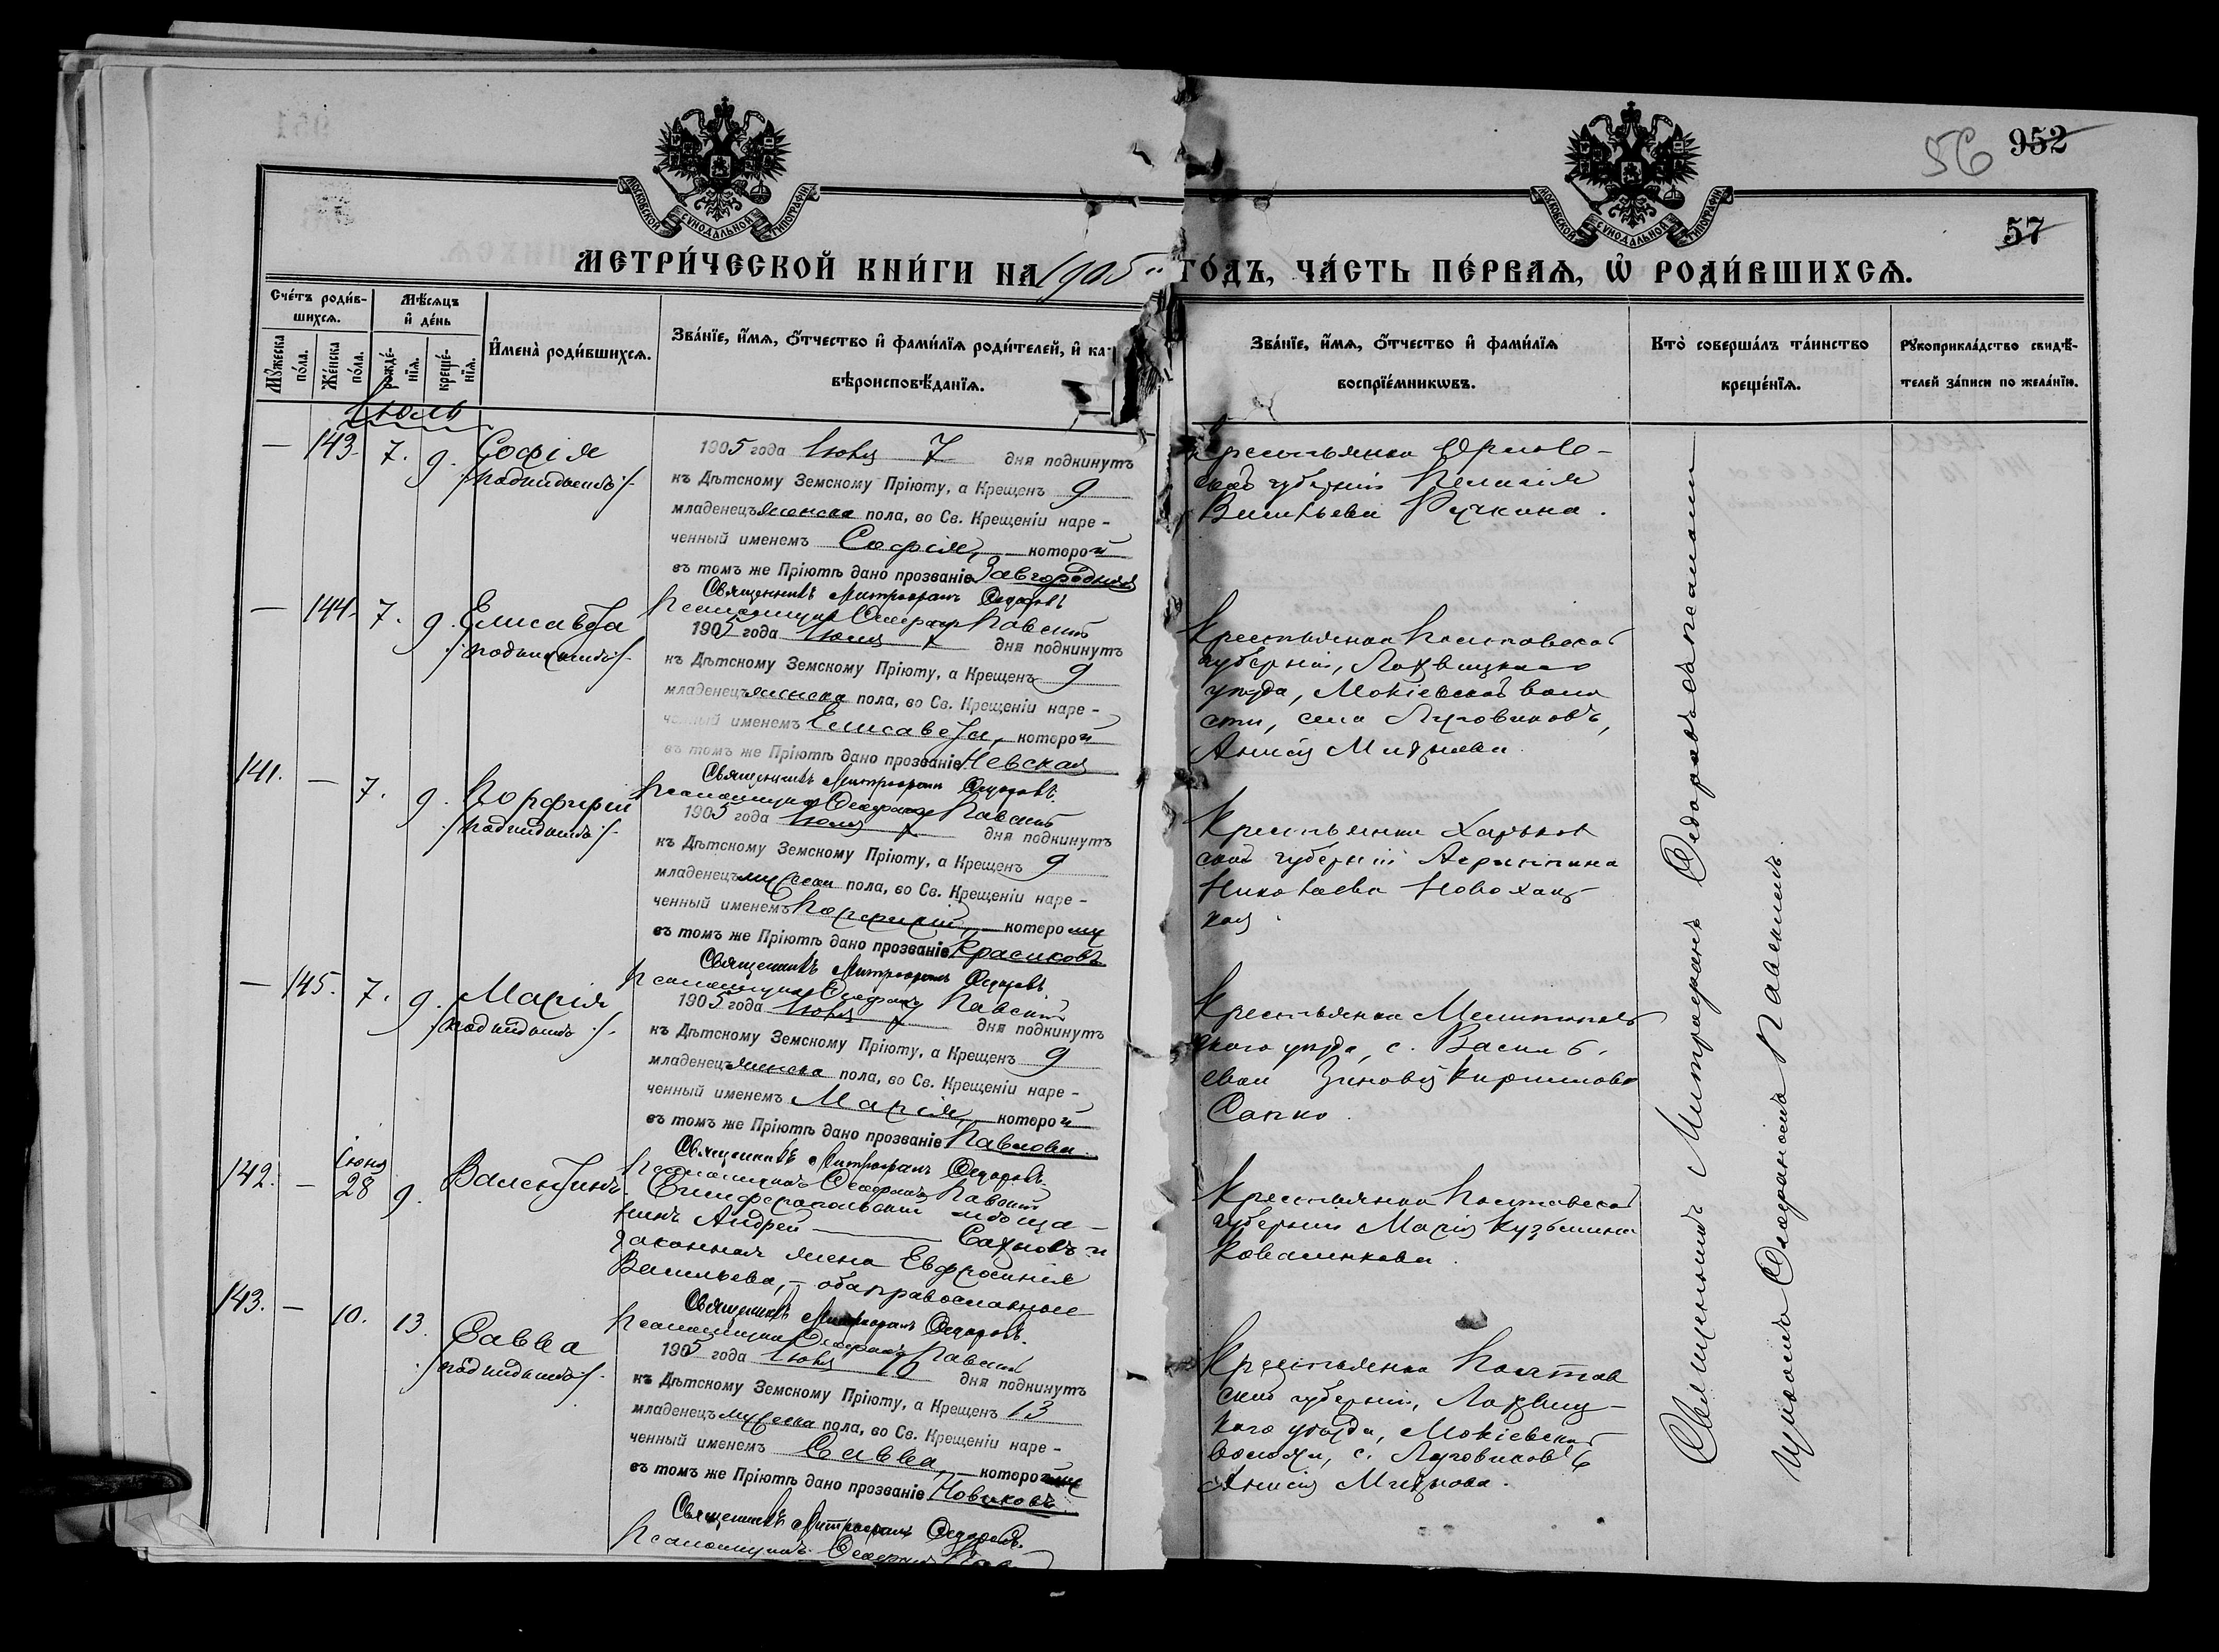 56 952
57
МОСКОВСКОЙ СУНОДАЛЬНОЙ ТИПОГРАФІИ
МОСКОВСКОЙ СУНОДАЛЬНОЙ ТИПОГРАФІИ
МЕТРИ́ЧЕСКОЙ КНИ́ГИ НА 1905 ГО́ДЪ, ЧА́СТЬ ПЕ́РВАѦ, Ѡ҆ РОДИ́ВШИХСѦ.
Сче́тъ роди́в-
шихсѧ.
Мꙋ́жеска по́ла.
Же́нска по́ла.
Мѣ́сѧцъ
и҆ де́нь
рожде́-нїѧ.
креще́-нїѧ.
И҆мена̀ роди́вшихсѧ.
Зва́нїе, и҆́мѧ, ѻ҆́тчество и҆ фами́лїѧ роди́телей, и҆ ка-
вѣроисповѣ́данїѧ.
Зва́нїе, и҆́мѧ, ѻ҆́тчество и҆ фами́лїѧ
воспрїе́мникѡвъ.
Кто̀ соверша́лъ та́инство
креще́нїѧ.
Рꙋкоприкла́дство свидѣ́-
телей за́писи по жела́нїю.
Іюль
— 143. 7. 9. Софія
/подкидышъ/
1905 года Іюля 7 дня подкинутъ
къ Дѣтскому Земскому Пріюту, а Крещенъ 9
младенецъ женска пола, во Св. Крещеніи наре-
ченный именемъ Софія, которой
въ томъ же Пріютѣ дано прозваніе Завгородняя
Священникъ Митрофанъ Ѳедоровъ
Псаломщикъ Ѳеофанъ Павскій
Крестьянка Орлов-
ской губерніи Пелагія
Васильева
— 144. 7. 9. Елисавета
/подкидышъ/
1905 года Іюля 7 дня подкинутъ
къ Дѣтскому Земскому Пріюту, а Крещенъ 9
младенецъ женска пола, во Св. Крещеніи наре-
ченный именемъ Елисавета, которой
въ томъ же Пріютѣ дано прозваніе Невская
Священникъ Митрофанъ Ѳедоровъ
Псаломщикъ Ѳеофанъ Павскій
Крестьянка Полтавской
губерніи, Лохвицкаго
уѣзда, Мокіевской воло
сти, села Луговиковъ,
Анисія Михнева
141. — 7. 9. Порфирій
/подкидышъ/
1905 года Іюля 7 дня подкинутъ
къ Дѣтскому Земскому Пріюту, а Крещенъ 9
младенецъ мужеска пола, во Св. Крещеніи наре-
ченный именемъ Порфирій, которому
въ томъ же Пріютѣ дано прозваніе Красиковъ
Священникъ Митрофанъ Ѳедоровъ
Псаломщикъ Ѳеофанъ Павскій
Крестьянка Харьков
ской губерніи Агриппина
Николаева
— 145. 7. 9. Марія
/подкидышъ/
1905 года Іюля 7 дня подкинутъ
къ Дѣтскому Земскому Пріюту, а Крещенъ 9
младенецъ женска пола, во Св. Крещеніи наре-
ченный именемъ Марія, которой
въ томъ же Пріютѣ дано прозваніе Павлова
Священникъ Митрофанъ Ѳедоровъ
Псаломщикъ Ѳеофанъ Павскій
Крестьянка Мелитополь
скаго уѣзда, с. Василь
евки Зиновія Кириллова
Сапко.
142. — Іюня 28 9. Валентинъ
Симферопольскій мѣща-
нинъ Андрей — Сахновъ и
законная жена Евфросинія
Васильева, — оба православные
Священникъ Митрофанъ Ѳедоровъ
Псаломщикъ Ѳеофанъ Павскій
Крестьянка Полтавской
губерніи Марія Кузьмина
Коваленкова.
143. — 10. 13. Савва
/подкидышъ/
1905 года Іюля 10 дня подкинутъ
къ Дѣтскому Земскому Пріюту, а Крещенъ 13
младенецъ мужеска пола, во Св. Крещеніи наре-
ченный именемъ Савва, которому
въ томъ же Пріютѣ дано прозваніе Новиковъ
Священникъ Митрофанъ Ѳедоровъ
Псаломщикъ Ѳеофанъ
Крестьянка Полтав
ской губерніи, Лохвиц-
каго уѣзда, Мокіевской
волости, с. Луговиковъ
Анисія Михнова.
Священникъ Митрофанъ Ѳедоровъ съ псаломщи
комъ Ѳеофаномъ Павскимъ.